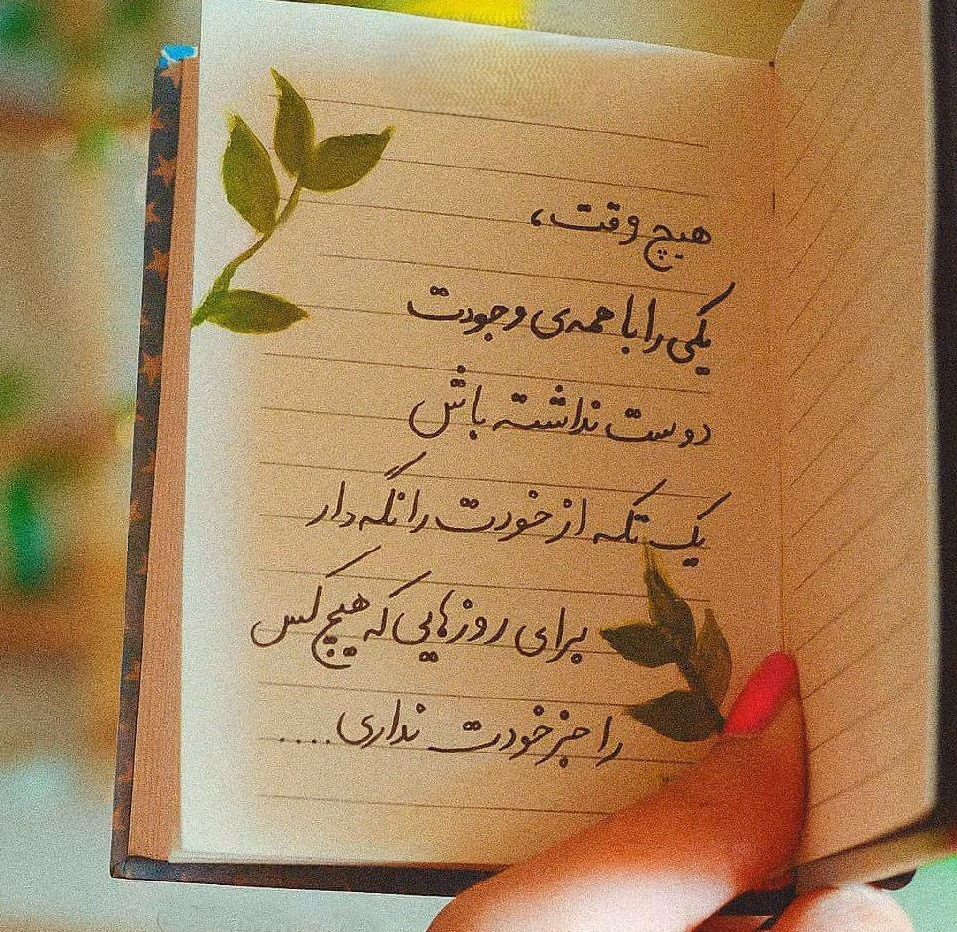 هیچ وقت،
یکی را با همه‌ی وجودت
دوست نداشته باش
یک تکه از خودت را نگه دار
برای روزهایی که هیچ کس
را جز خودت نداری....